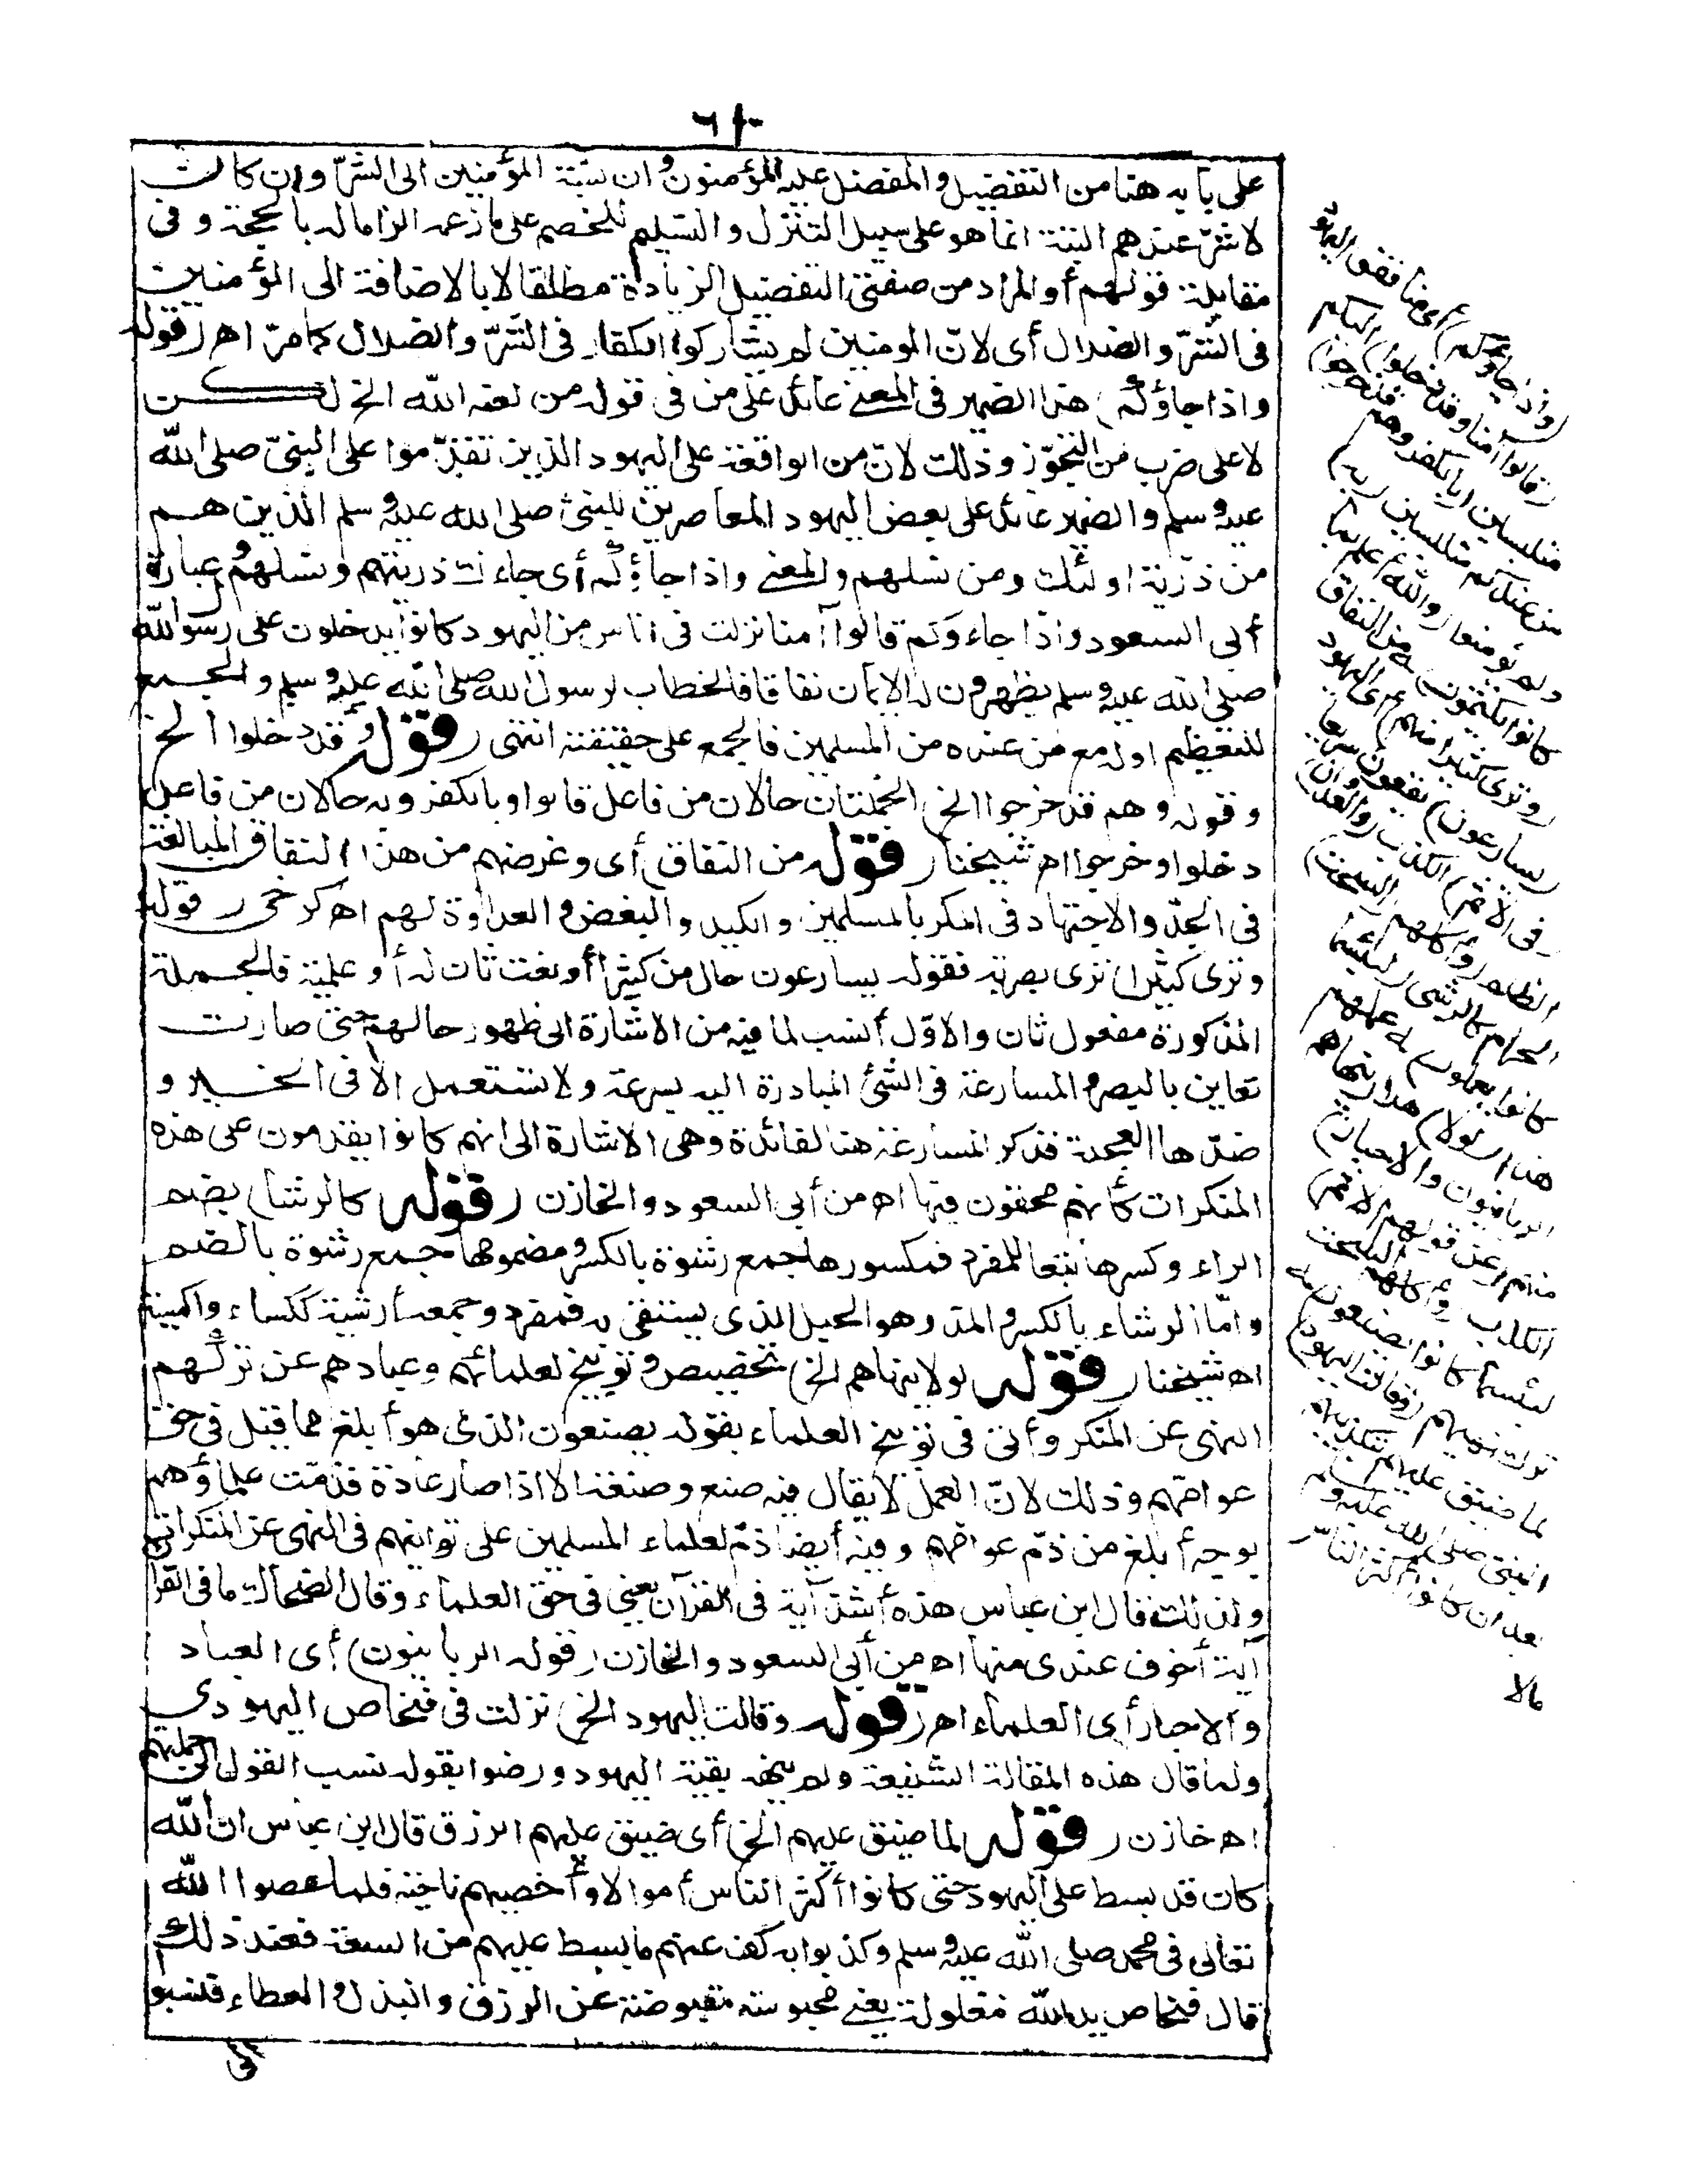 على بابه هنا من التفضيل والمفضل عليه المؤمنون وان نسبة المؤمنين الى الشرّ وان كان
لا شرّ عندهم البتة انما هو على سبيل التنزل والتسليم للخصم على ما زعمه الزاما له بالحجة وفى
مقابلة قولهم أو المراد من صفتى التفضيل الزيادة مطلقا لا بالاضافة الى المؤمنين
فى الشرّ والضلال أى لانّ المومنين لم يشاركوا الكفار فى الشّر والضلال كما مرّ اهر (قوله
واذا جاؤكم) هذا الضمير فى المعنى عائد على من فى قوله من لعنه الله الخ لكن
لا على ضرب من التجوّز وذلك لانّ من الواقعة على اليهود الذين تقدّموا على النبىّ صلى الله
عليه وسلم والضمير عائد على بعض اليهود المعاصرين للنبىّ صلى الله عليه وسلم الذين هم
من ذرّية اولئك ومن نسلهم والمعنى واذا جاؤكم أى جاءت ذريتهم ونسلهم وعبارة
أبى السعود واذا جاءوكم قالوا آمنا نزلت فى ناس من اليهود كانوا يدخلون على رسول الله
صلى الله عليه وسلم يظهرون له الايمان نفاقا فالخطاب لرسول الله صلى الله عليه وسلم والجمع
للتعظيم او له مع من عنده من المسلمين فالجمع على حقيقته انتهى (قوله وقد دخلوا الخ
وقوله وهم قد خرجوا الخ) الجملتان حالان من فاعل قالوا وبالكفر وبه حالان من فاعل
دخلوا وخرجوا اه شيخنا (قوله من النفاق) أى وغرضهم من هذا النفاق المبالغة
فى الجدّ والاجتهاد فى المكر بالمسلمين والكيد والبغض والعداوة لهم اه كرخى (قوله
وترى كثيرا) ترى بصرية فقوله يسارعون حال من كثيرا أو نعت ثان له أو علمية فالجملة
المذكورة مفعول ثان والاوّل أنسب لما فيه من الاشارة الى ظهور حالهم حتى صارت
تعاين بالبصر والمسارعة فى الشئ المبادرة اليه بسرعة ولا تستعمل الا فى الخير و
ضدّها العجلة فذكر المسارعة هنا لفائدة وهى الاشارة الى انهم كانوا يقدمون على هذه
المنكرات كأنهم محقون فيها اه من أبى السعود والخازن (قوله كالرشا) بضم
الراء وكسرها تبعا للمفرد فمكسورها جمع رشوة بالكسر ومضمومها جمع رشوة بالضم
وامّا الرشاء بالكسر والمد وهو الحبل الذى يستقى به فمفرد وجمعه أرشية ككساء واكسية
اه شيخنا (قوله لولا ينهاهم الخ) تحضيض وتوبيخ لعلمائهم وعبادهم عن تركهم
النهى عن المنكر وأتى فى توبيخ العلماء بقوله يصنعون الذى هو أبلغ مما قيل فى حق
عوامّهم وذلك لانّ العمل لا يقال فيه صنع وصنعة الا اذا صار عادة فذمّت علماؤهم
بوجه أبلغ من ذمّ عوامّهم وفيه أيضا ذمّ لعلماء المسلمين على توانيهم فى النهى عن المنكرات
ولذلك قال ابن عباس هذه أشدّ آية فى القرآن يعنى فى حق العلماء وقال الضحاك ما فى القرآن
آية أخوف عندى منها اه من أبى السعود والخازن (قوله الربانيون) أى العباد
والاحبار أى العلماء اهر (قوله وقالت اليهود الخ) نزلت فى فنحاص اليهودى
ولما قال هذه المقالة الشنيعة ولم ينهه بقية اليهود ورضوا بقوله نسب القول الى جملتهم
اه خازن (قوله لما ضيق عليهم الخ) أى ضيق عليهم الرزق قال ابن عباس ان الله
كان قد بسط على اليهود حتى كانوا أكثر الناس أموالا وأخصبهم ناحية فلما عصوا الله
تعالى فى محمد صلى الله عليه وسلم وكذبوا به كف عنهم ما بسط عليهم من السعة فعند ذلك
قال فنحاص يد الله مغلولة يعنى محبوسة مقبوضة عن الرزق والبذل والعطاء فنسبو
(واذا جاؤكم) أى منافقو اليهود
(قالوا آمنا وقد دخلوا) اليكم
متلبسين (بالكفر وهم قد خرجوا)
من عندكم متلبسين (به)
ولم يؤمنوا (والله أعلم بما
كانوا يكتمون) ـه من النفاق
(وترى كثيرا منهم) أى اليهود
(يسارعون) يقعون سريعا
(فى الاثم) الكذب (والعدوان)
الظلم (وأكلهم السحت)
الحرام كالرشى (لبئس ما
كانوا يعملون) ـه عملهم
هذا (لولا) هلا (ينهاهم
الربانيون والاحبار)
منهم (عن قولهم الاثم)
الكذب (وأكلهم السحت
لبئس ما كانوا يصنعون) ـه
ترك نهيهم (وقالت اليهود)
لما ضيق عليهم بتكذيبهم
النبى صلى الله عليه وسلم
بعد ان كانوا أكثر الناس
مالا